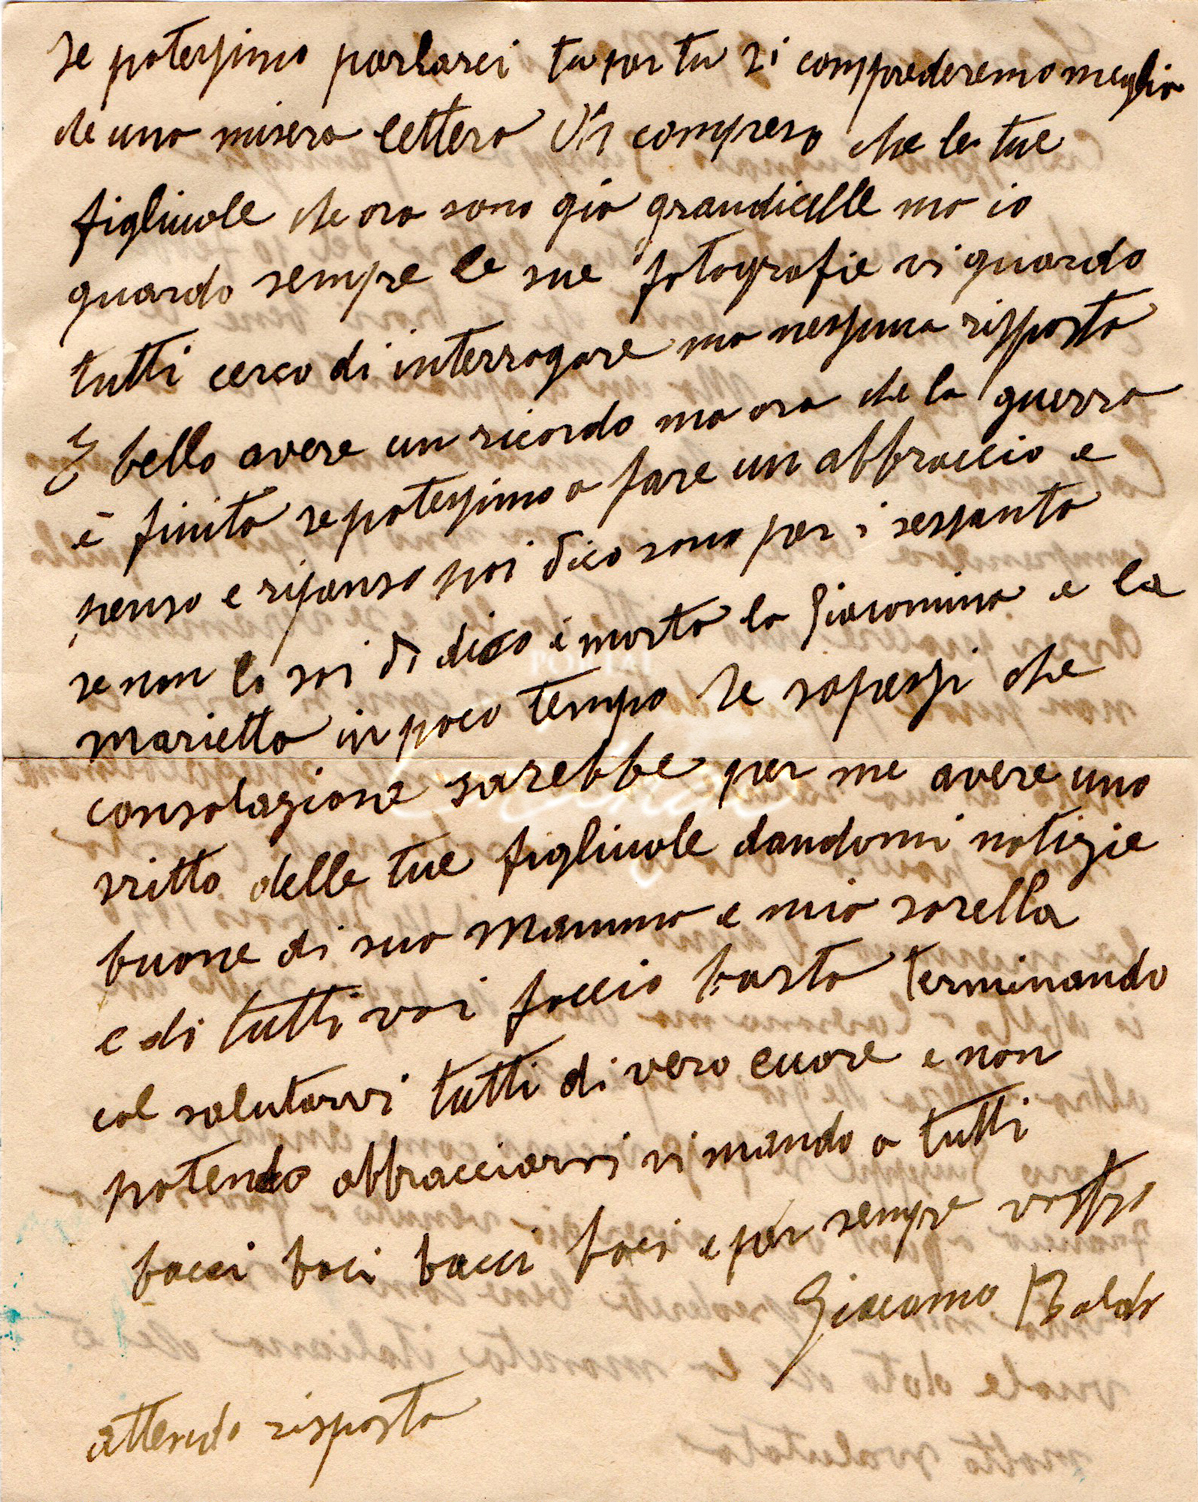 Se potessimo parlarci tu per tu si comprederemo meglio
che una misera lettera Ò compreso che le tue
figliuole che ora sono gia grandicelle ma io
guardo sempre le sue fotografie vi guardo
tutti cerco di interrogare ma nessuna rissposta
E bello avere un ricordo ma ora che la guerra
è finita se potessimo a fare un abbraccio e
penso e ripenso poi dico sono per i sessanta
se non lo sai di dico è morta la Giacomina e la
marietta in poco tempo Se sapessi che
consolazione sarebbe per me avere uno
sritto delle tue figliuole dandomi notizie
buone di sua mamma e mia sorella
e di tutti voi faccio basta terminando
col salutarvi tutti di vero cuore e non
potendo abbracciarvi vi mando a tutti
bacci baci bacci baci e per sempre vostro
Giacomo Baldi
attendo risposta